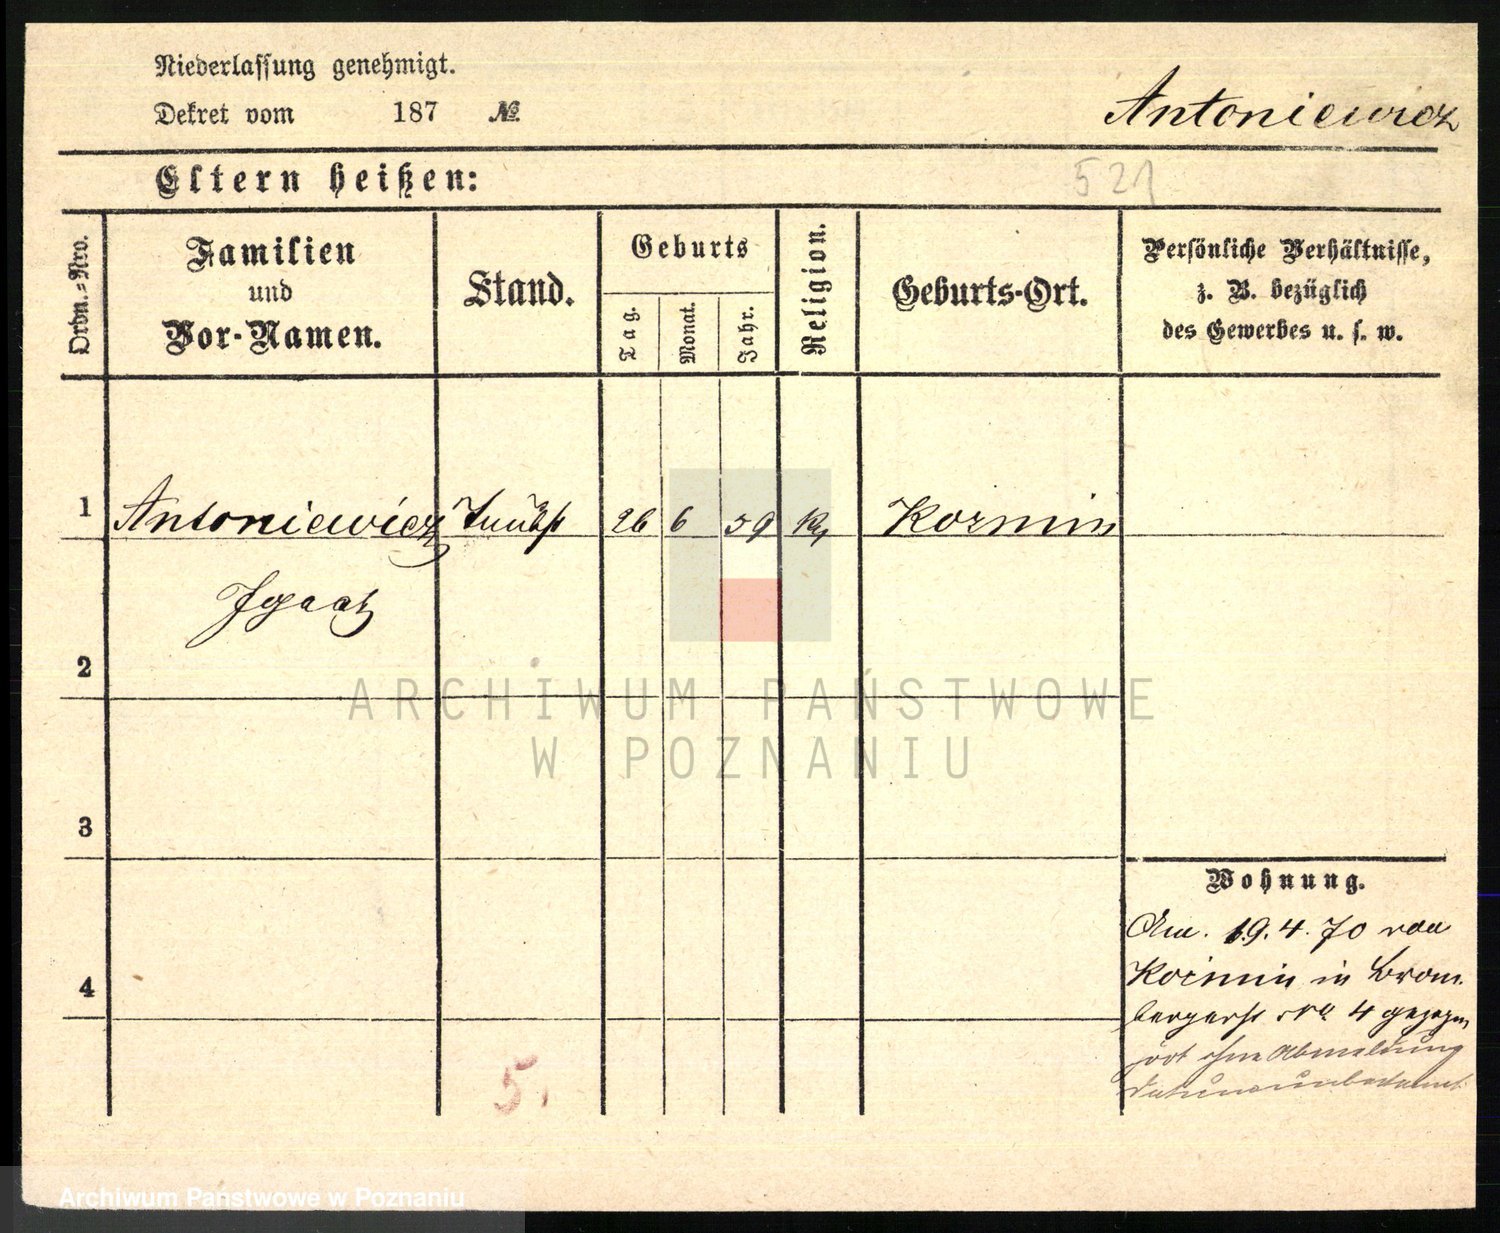 Niederlassung genehmigt.
Dekret vom 187 №
Antoniewicz
Eltern heißen:
521
Ordn.=Nro.
Familien
und
Vor-Namen.
Stand.
Geburts
Tag.
Monat.
Jahr.
Religion.
Geburts-Ort.
Persönliche Verhältnisse,
z. B. bezüglich
des Gewerbes u. s. w.
1
Antoniewicz 26 6 59 Kozmin
Ignatz
2
ARCHIWUM PAŃSTWOWE
W POZNANIU
3
Wohnung.
19.4.70 von
Kozmin in Brom-
4
bergerst No 4 gezogen
fort ohne Abmeldung
Datum unbekannt
5.
Archiwum Państwowe w Poznaniu